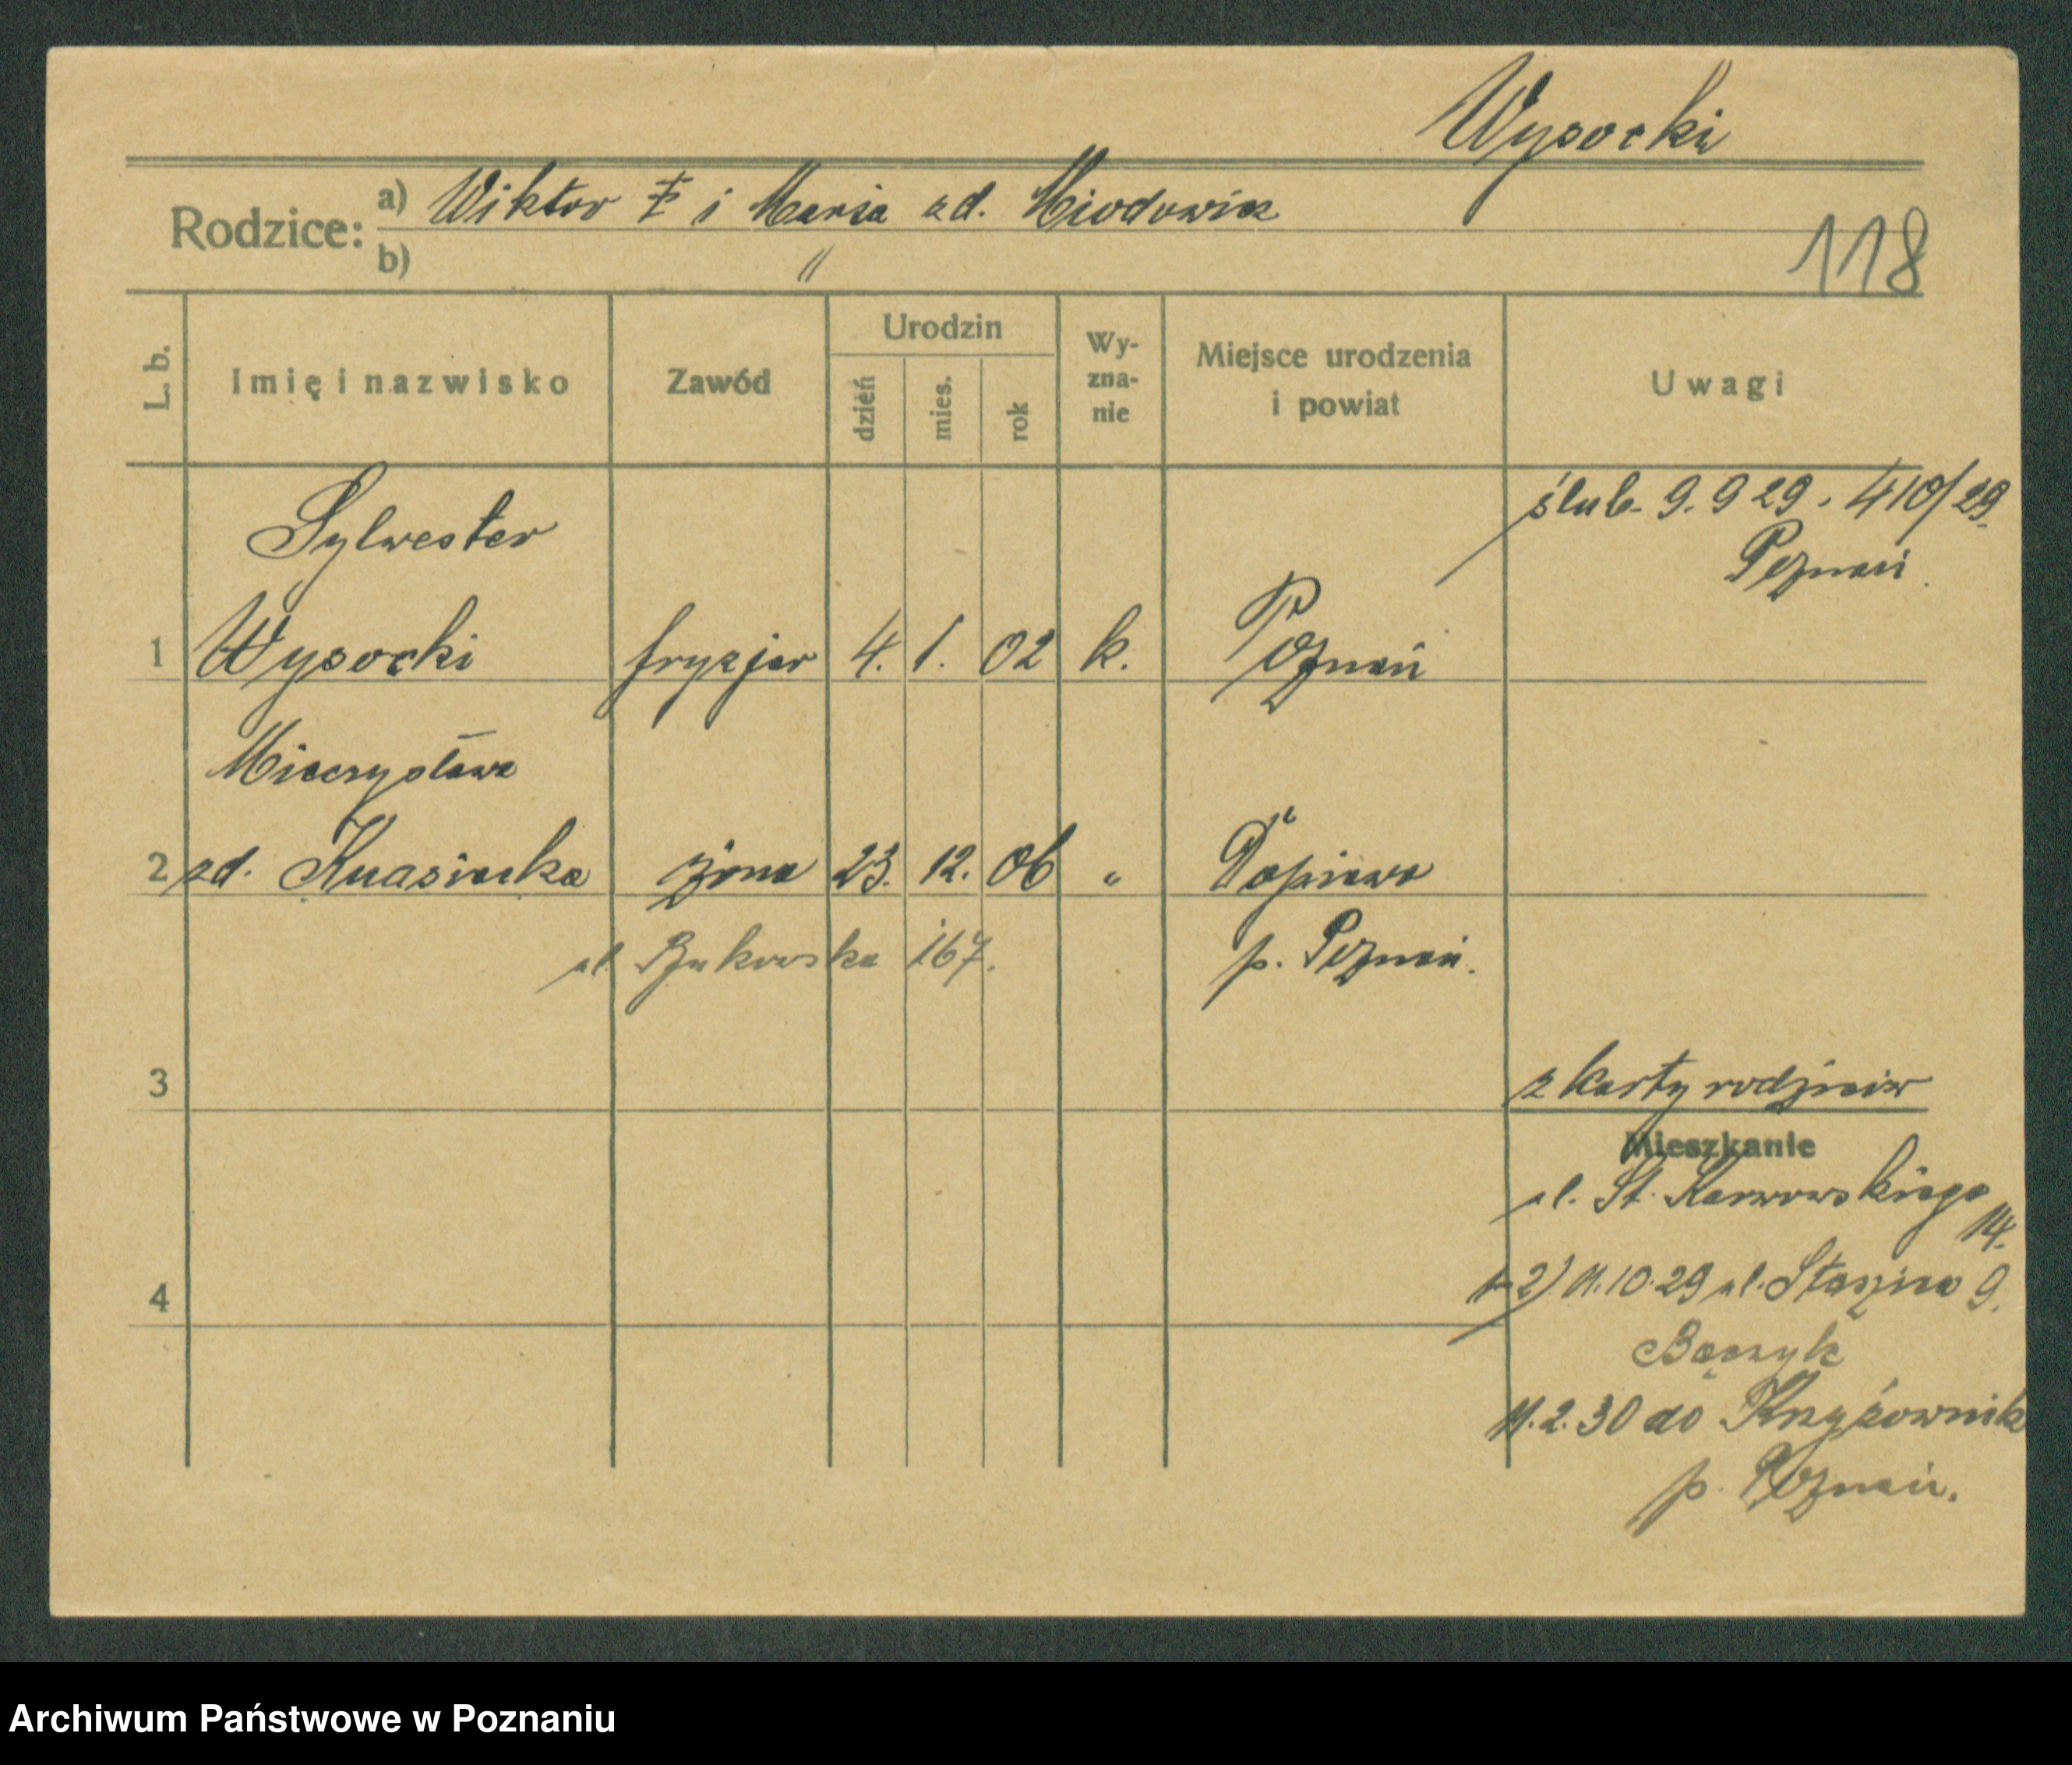 Wysocki
Rodzice: a) Wiktor ‡ i Maria zd. Miodowicz
b) "
118
L. b.
Imię i nazwisko
Zawód
Urodzin
dzień
mies.
rok
Wy-
zna-
nie
Miejsce urodzenia
i powiat
Uwagi
ślub. 9. 9 29. 410/29.
Poznań.
Sylwester
1 Wysocki fryzjer 4. 1. 02 k. Poznań
Mieczysława
2 zd. żona 23. 12. 06 " Dopiewo
ul. Bukowska 167. p. Poznań.
3
z karty rodziców
Mieszkanie
ul. St. Karwowskiego
14.
4
1-2) 11.10.29 ul. Staszica 9.
Bączyk
11.2.30 do Krzyżownik
p. Poznań.
Archiwum Państwowe w Poznaniu